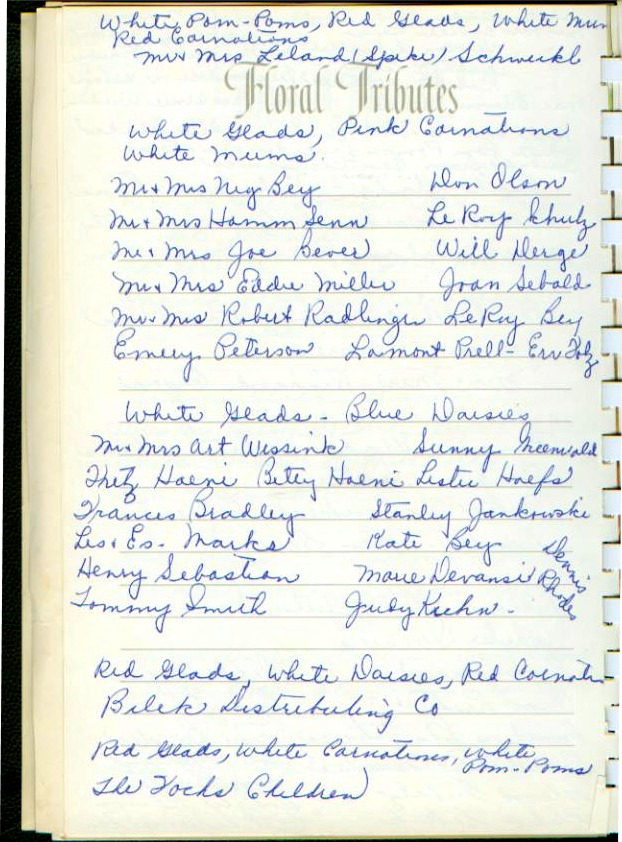 White Pom-Poms, Red Glads, White Mum
Red Carnations
Mr & Mrs Leland (Spike) Schwerkl
Floral Tributes
White Glads, Pink Carnations
White Mums.
Mr & Mrs Neg Bey Don Olson
Mr & Mrs Hamm Senn LeRoy Schulz
Mr & Mrs Joe Bever Will Derge
Mr & Mrs Eddie Miller Joan Sebald
Mr & Mrs Robert Radlinger LeRoy Bey
Emery Peterson Lamont Prell - Erv Folz
White Glads - Blue Daisies
Mr & Mrs Art Wissink Sunny Greenwald
Fritz Haeni Betty Haeni Lester Hoefs
Frances Bradley Stanley Jankowski
Les & Es. Marks Kate Bey Dennis
Henry Sebastian Marie Devansi Rhodes
Tommy Smith Judy Kuehn -
Red Glads, White Daisies, Red Carnation
Bilek Distributing Co
Red Glads, White Carnations, White
Pom-Poms
The Fochs Children